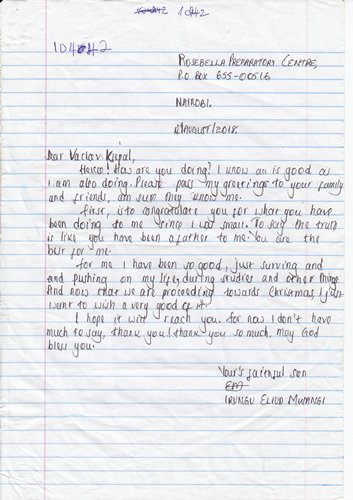 1042 1042
ID4042
ROSEBELLA PREPARATORY CENTRE,
P.O BOX 655-00516
NAIROBI,
AUGUST/2018.
Dear Vaclav
Hello! How are you doing? I know all is good as
I am also doing. Please pass my greetings to your family
and friends, am sure they know me.
First, is to congratulate you for what you have
been doing to me since I was small. To say the truth
is like you have been a father to me. You are the
best for me.
For me I have been so good, just surving and
and pushing on my life, during studies and other things.
And now that we are proceeding towards Christmas, I just
want to wish a very good of it.
I hope it will reach you. For now I don't have
much to say, thank you! thank you so much. May God
bless you.
Your's faithful son
IRUNGU ELIUD MWANGI